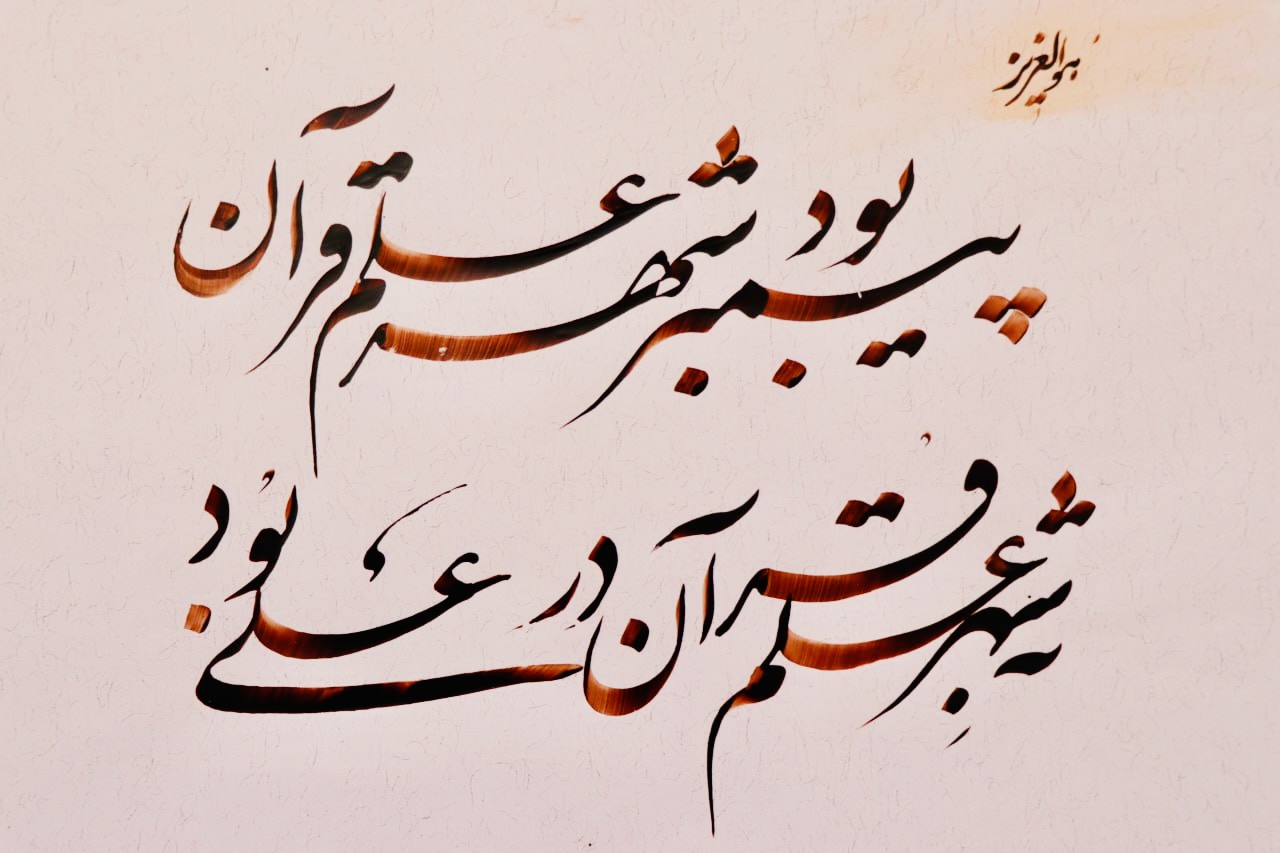 هوالعزیز
پیمبر بود شهر علم قرآن
به شهرِ علم قُرآن در علی بُود